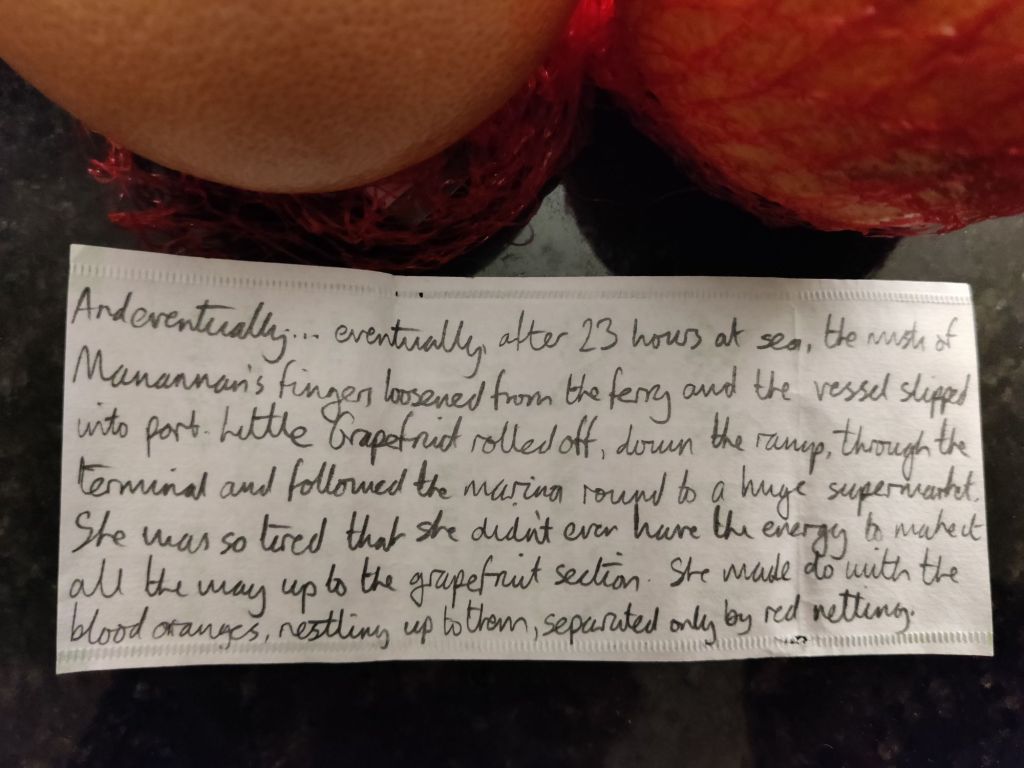 And eventually... eventually, after 23 hours at sea, the mush of
Manannan's fingers loosened from the ferry and the vessel slipped
into port. Little Grapefruit rolled off, down the ramp, through the
terminal and followed the marina round to a huge supermarket.
She was so tired that she didn't even have the energy to make it
all the way up to the grapefruit section. She made do with the
blood oranges, nestling up to them, separated only by red netting.